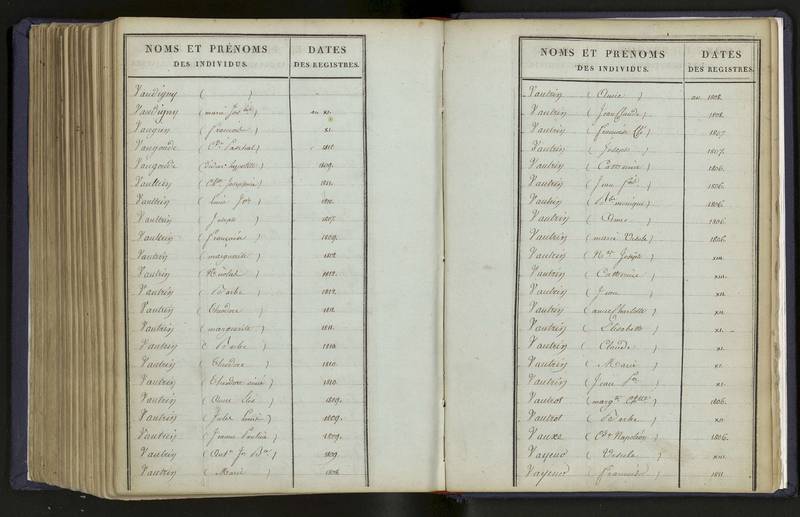 NOMS ET PRÉNOMS DES INDIVIDUS.
DATES DES REGISTRES.
Vaudigny ( )
Vaudigny (marie Jos.) an XI.
(françois) XI.
Vaugoude (Paschal) 1810
Vaugoude 1809.
Vaultrin (Josephine) 1811.
Vaultrin (Jos.) 1812.
Vaultrin (Joseph) 1807.
Vaultrin (françoise) 1809.
Vautrin (marguerite) 1812
Vautrin (Nicolas) 1812.
Vautrin (Barbe) 1812.
Vautrin (Theodore) 1811.
Vautrin (marguerite) 1811.
Vautrin (Barbe) 1810
Vautrin (Theodore) 1810.
Vautrin (Theodore aimé) 1810.
Vautrin (Anne) 1809.
Vautrin (Jules) 1809.
Vautrin (Jeanne) 1809.
Vautrin 1809
Vautrin (Marie) 1808
NOMS ET PRÉNOMS DES INDIVIDUS.
DATES DES REGISTRES.
Vautrin (Anne) an 1808.
Vautrin (Jean Claude) 1808.
Vautrin (françois) 1807
Vautrin (Joseph) 1807.
Vautrin (Catherine) 1806.
Vautrin (Jean) 1806.
Vautrin (Dominique) 1806
Vautrin (Anne) 1806
Vautrin (marie Ursule) 1806
Vautrin (Joseph) XIII.
Vautrin (Catherine) XIII.
Vautrin (Jean) XII.
Vautrin (anne Charlotte) XII.
Vautrin (Elisabeth) XI.
Vautrin (Claude) XI.
Vautrin (Marie) XI.
Vautrin (Jean) XI.
Vautrot (marg.) 1806.
Vautrot (Barbe) XII
Vaux (Napoléon) 1806.
Vayeur (Ursule) XIII
Vayeur (françois) 1811